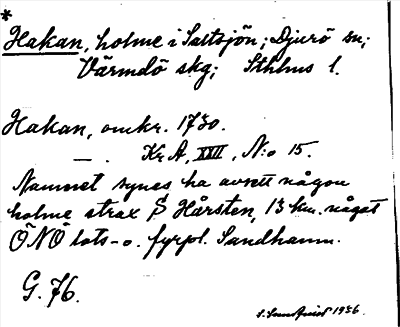 *
Hakan, holme i Saltsjön; Djurö sn;
Värmdö skg; Sthlms l.
Hakan, omkr. 1730.
— . Kr A, XXII, N:o 15.
Namnet synes ha avsett någon
holme strax S Hårsten, 13 km. något
ÖNÖ lots- o. fyrpl. Sandhamn.
G. 76.
1936